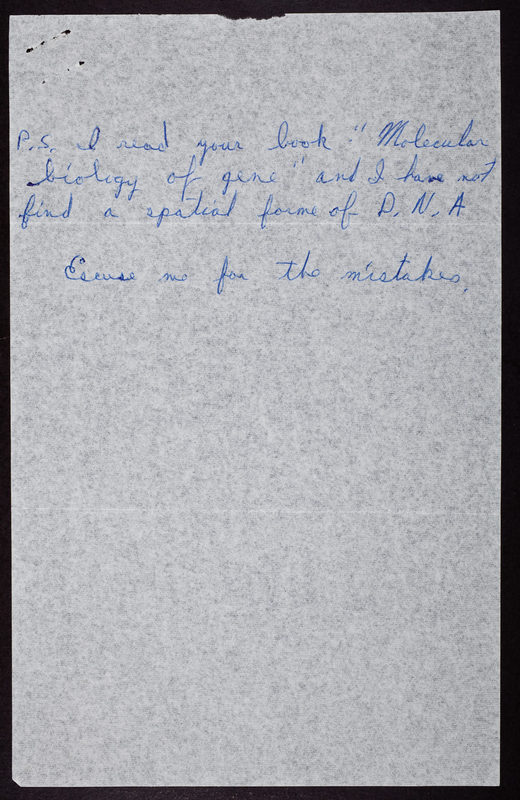 P.S. I read your book : "Molecular
biology of gene" and I have not
find a spatial forme of D.N.A
Escuse me for the mistakes.